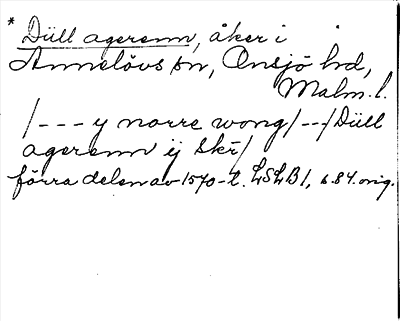 * Düll agerenn, åker i
Annelövs sn, Onsjö hd,
Malm. l.
/--- y norre wong/--/Düll
agerenn ij Skr/
förra delen av 1570-t. LSLB 1, s 84. orig.